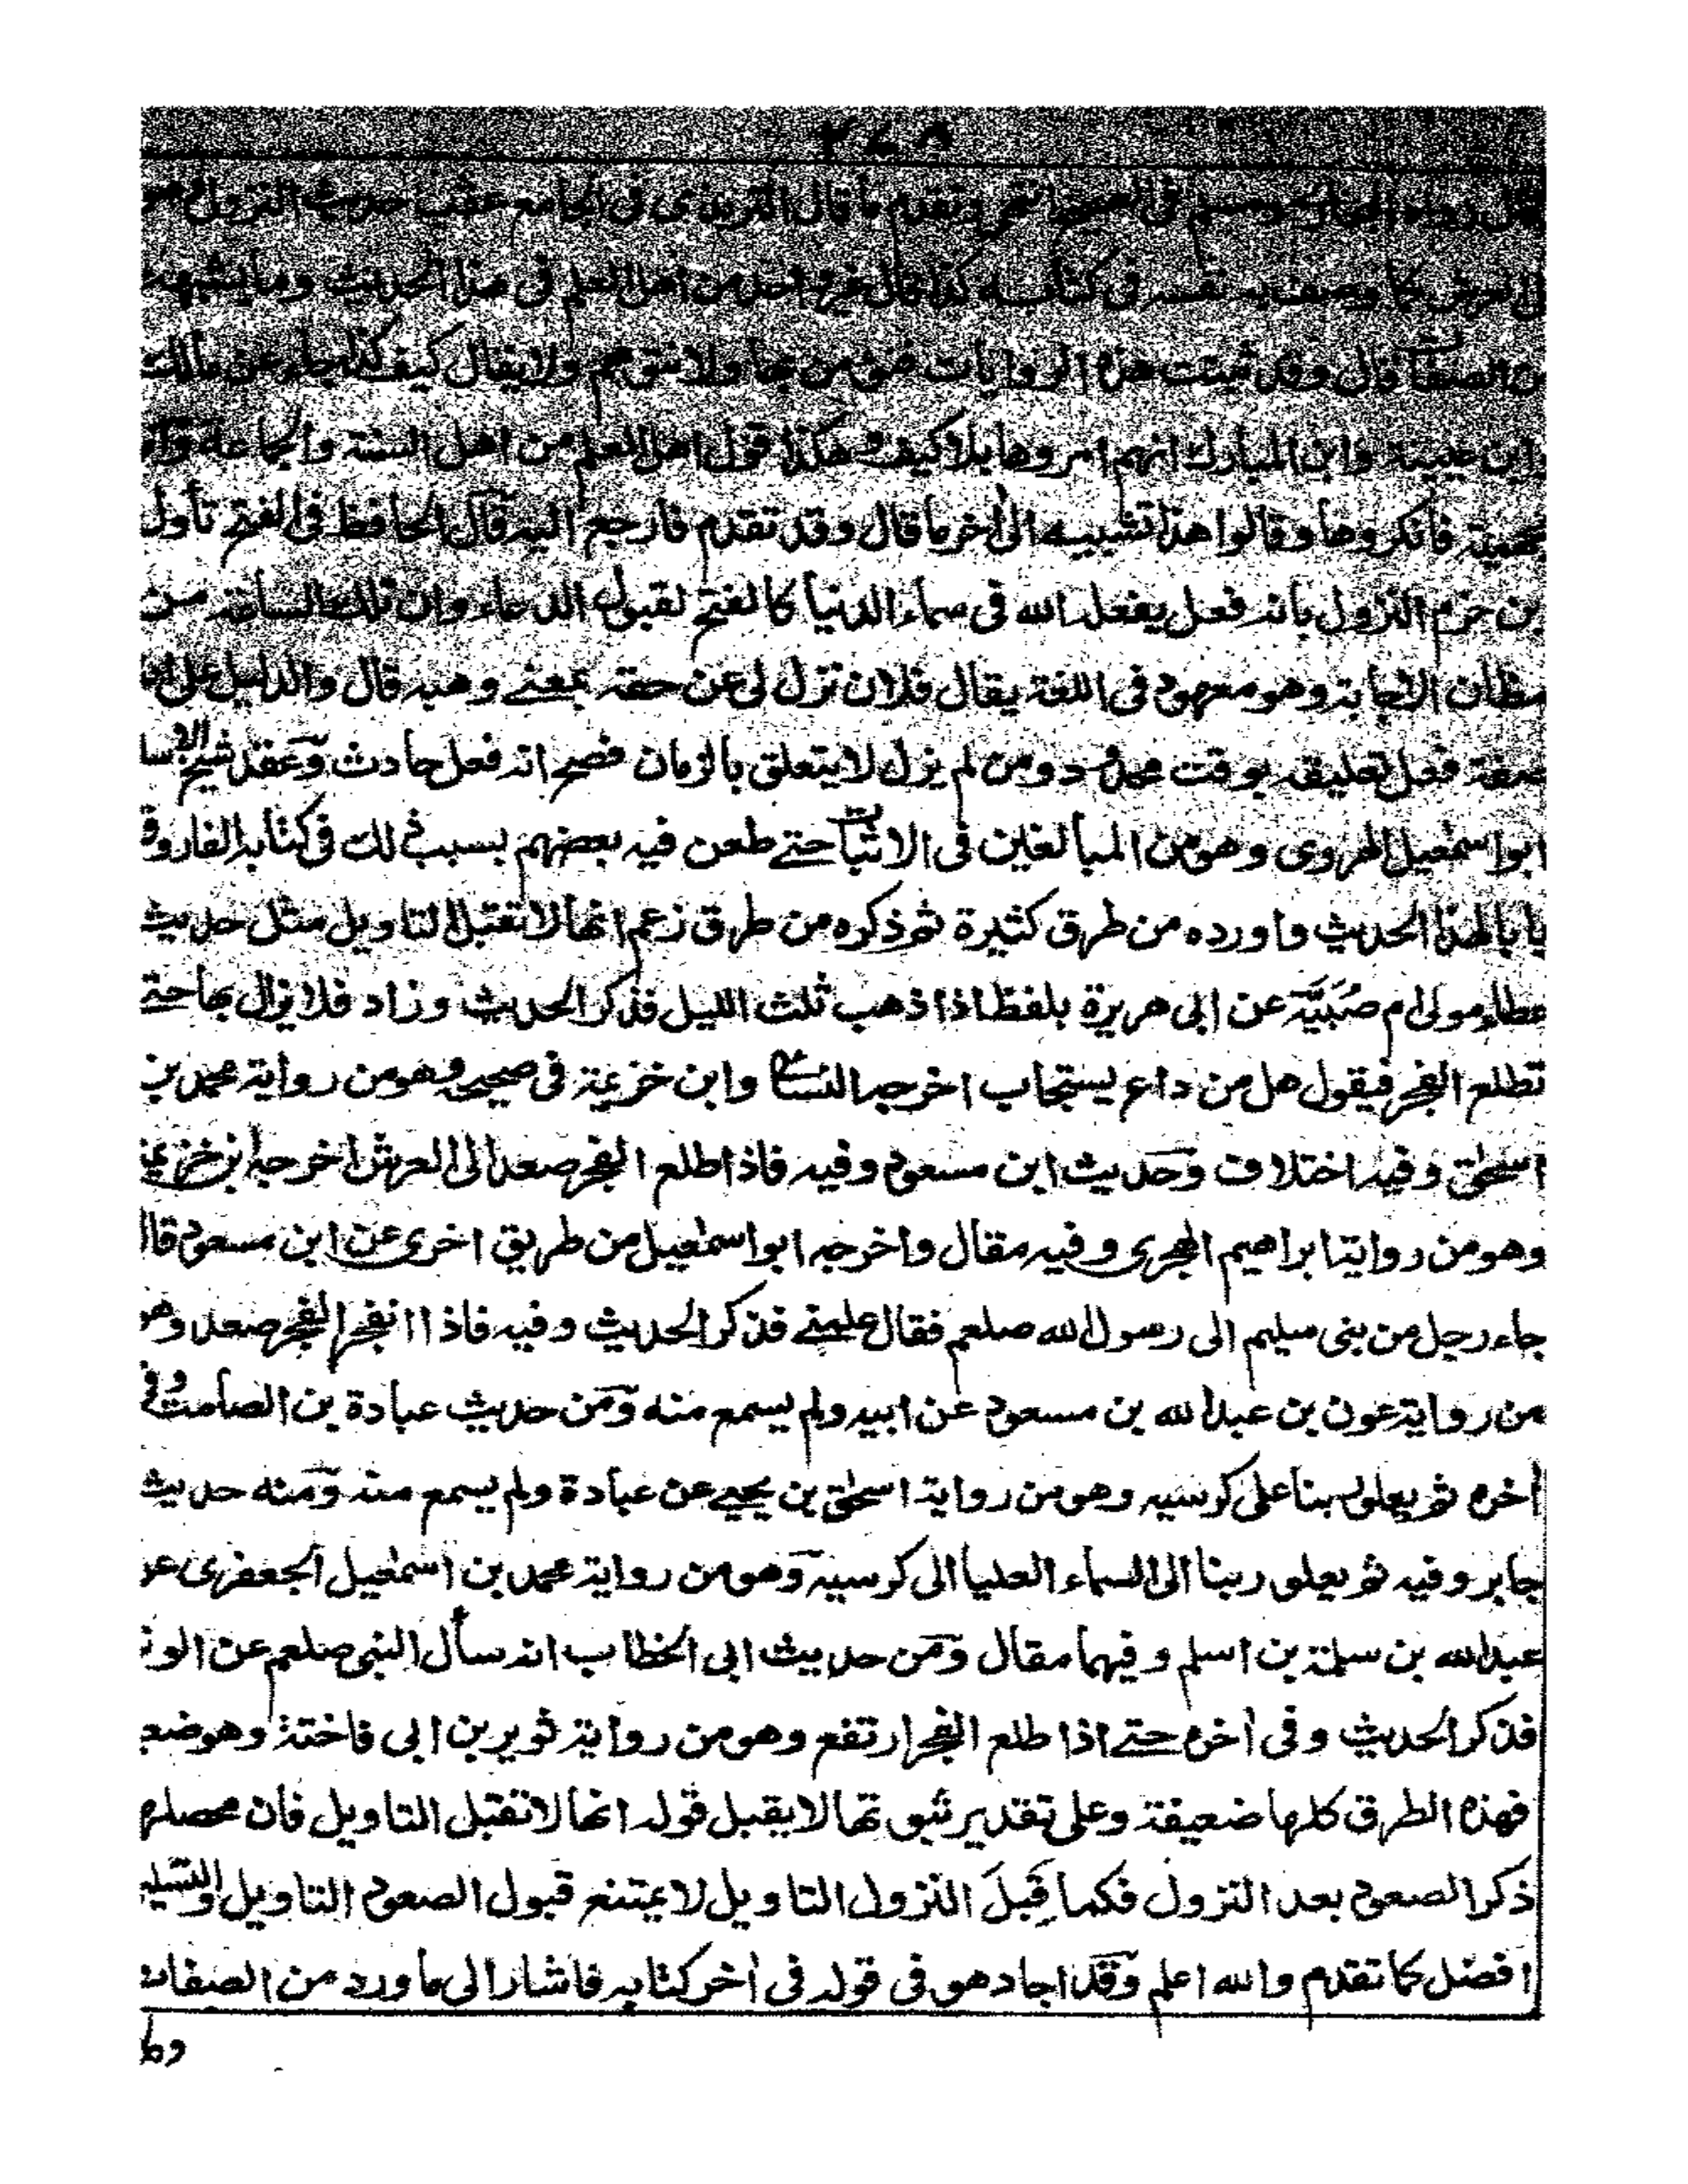 رواه البخاري ومسلم في الصحيح انتهى وتقدم ما قال الترمذى فى الجامع عقب حديث النزول هو
العرش كما وصف به نفسه فى كتابه كذا قال غير واحد من اهل العلم فى هذا الحديث وما يشبهه
من الصفات قال وقد ثبتت هذه الروايات فنؤمن بها ولا نتوهم ولا يقال كيف كذا جاء عن مالك
وابن عيينة وابن المبارك انهم امروها بلا كيف وهكذا قول اهل العلم من اهل السنة والجماعة واما
الجهمية فانكروها وقالوا هذا تشبيه الى اخر ما قال وقد تقدم فارجع اليه قال الحافظ فى الفتح تأول
بن حزم النزول بانه فعل يفعله الله فى سماء الدنيا كالفتح لقبول الدعاء وان تلك الساعة من
مظان الاجابة وهو معهود فى اللغة يقال فلان نزل لى عن حقه بمعنے وهبه قال والدليل على انه
صفة فعل تعليقه بوقت محدود ومن لم يزل لا يتعلق بالزمان فصح انه فعل حادث وعقد شيخ الاسلا
ابو اسمٰعيل الهروى وهو من المبالغين فى الاثبات حتے طعن فيه بعضهم بسبب ذلك فى كتابه الفاروق
بابا لهذا الحديث واورده من طرق كثيرة ثم ذكره من طرق زعم انها لا تقبل التاويل مثل حديث
عطاء مولى ام صُبَيَّة عن ابى هريرة بلفظ اذا ذهب ثلث الليل فذكر الحديث وزاد فلا يزال بها حتے
تطلع الفجر فيقول هل من داع يستجاب اخرجه النسائى وابن خزيمة فى صحيحه وهو من رواية محمد بن
اسحٰق وفيه اختلاف وحديث ابن مسعود وفيه فاذا طلع الفجر صعد الى العرش اخرجه ابن خزيمة
وهو من رواية ابراهيم الهجرى وفيه مقال واخرجه ابو اسمٰعيل من طريق اخرى عن ابن مسعود قال
جاء رجل من بنى سليم الى رسول الله صلعم فقال علمنے فذكر الحديث وفيه فاذا انفجر الفجر صعد وهو
من رواية عون بن عبد الله بن مسعود عن ابيه ولم يسمع منه ومن حديث عبادة بن الصامت وفى
أخره ثم يعلو ربنا على كرسيه وهو من رواية اسحٰق بن يحيے عن عبادة ولم يسمع منه ومنه حديث
جابر وفيه ثم يعلو ربنا الى السماء العليا الى كرسيه وهو من رواية محمد بن اسمٰعيل الجعفرى عن
عبد الله بن سلمة بن اسلم وفيهما مقال ومن حديث ابى الخطاب انه سأل النبى صلعم عن الوتر
فذكر الحديث وفى أخره حتے اذا طلع الفجر ارتفع وهو من رواية ثوير بن ابى فاختة وهو ضعيف
فهذه الطرق كلها ضعيفة وعلى تقدير ثبوتها لا يقبل قوله انها لا تقبل التاويل فان محصلها
ذكر الصعود بعد النزول فكما قَبِلَ النزول التاويل لا يمتنع قبول الصعود التاويل والتسليم
افضل كما تقدم والله اعلم وقد اجاد هو فى قوله فى أخر كتابه فاشار الى ما ورد من الصفات